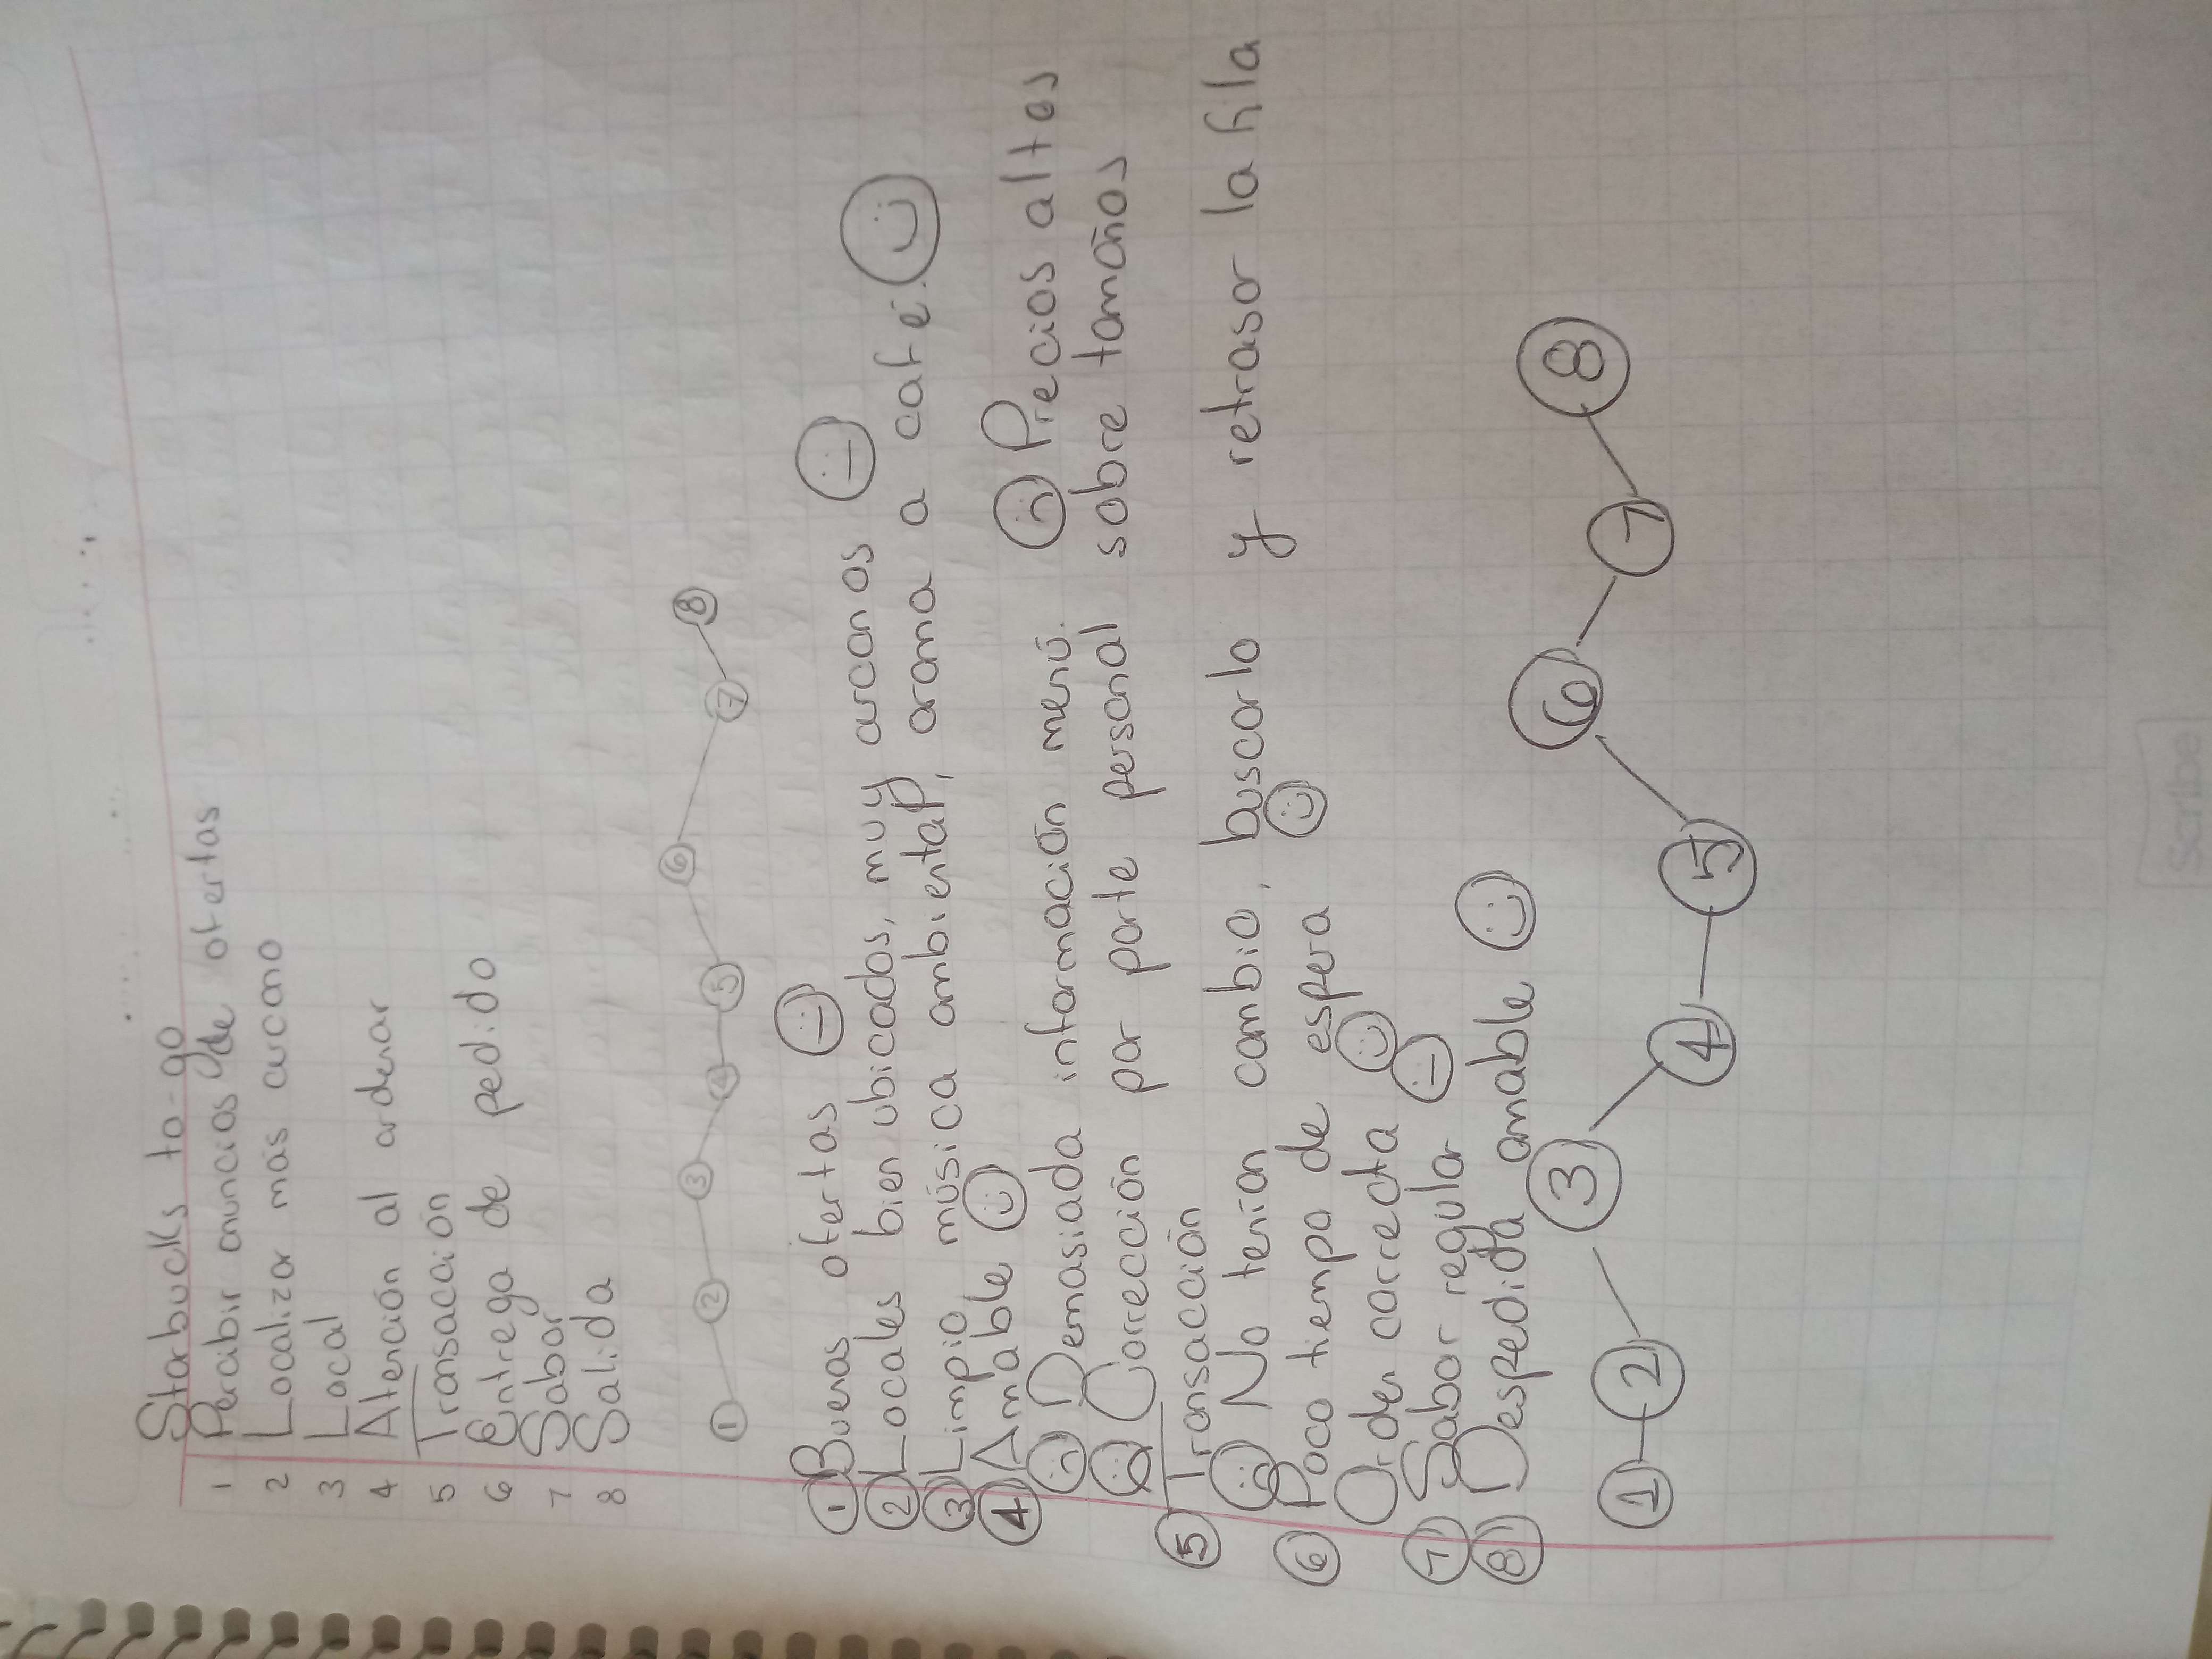 Starbucks to-go
1 Percibir anuncios de ofertas
2 Localizar más cercano
3 Local
4 Atención al ordenar
5 Transacción
6 Entrega de pedido
7 Sabor
8 Salida
1 2 3 4 5 6 7 8
1 Buenas ofertas
2 Locales bien ubicados, muy cercanos
3 Limpio, música ambiental, aroma a café.
4 Amable
Demasiada información menú. Precios altos
Corrección por parte personal sobre tamaños
5 Transacción
No tenían cambio, buscarlo y retrasar la fila
6 Poco tiempo de espera
Orden correcta
7 Sabor regular
8 Despedida amable
1 2 3 4 5 6 7 8
Scribe